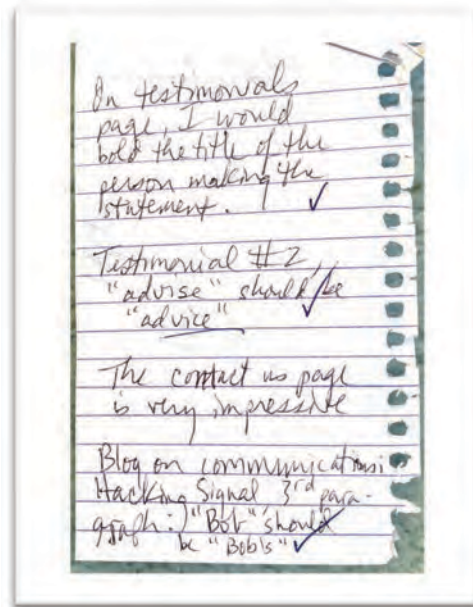 On testimonials
page, I would
bold the title of the
person making the
statement. ✓
Testimonial #2,
"advise" should be
"advice" ✓
The contact us page
is very impressive
Blog on communications:
Hacking Signal 3rd para-
graph: "Bob" should
be "Bob's" ✓